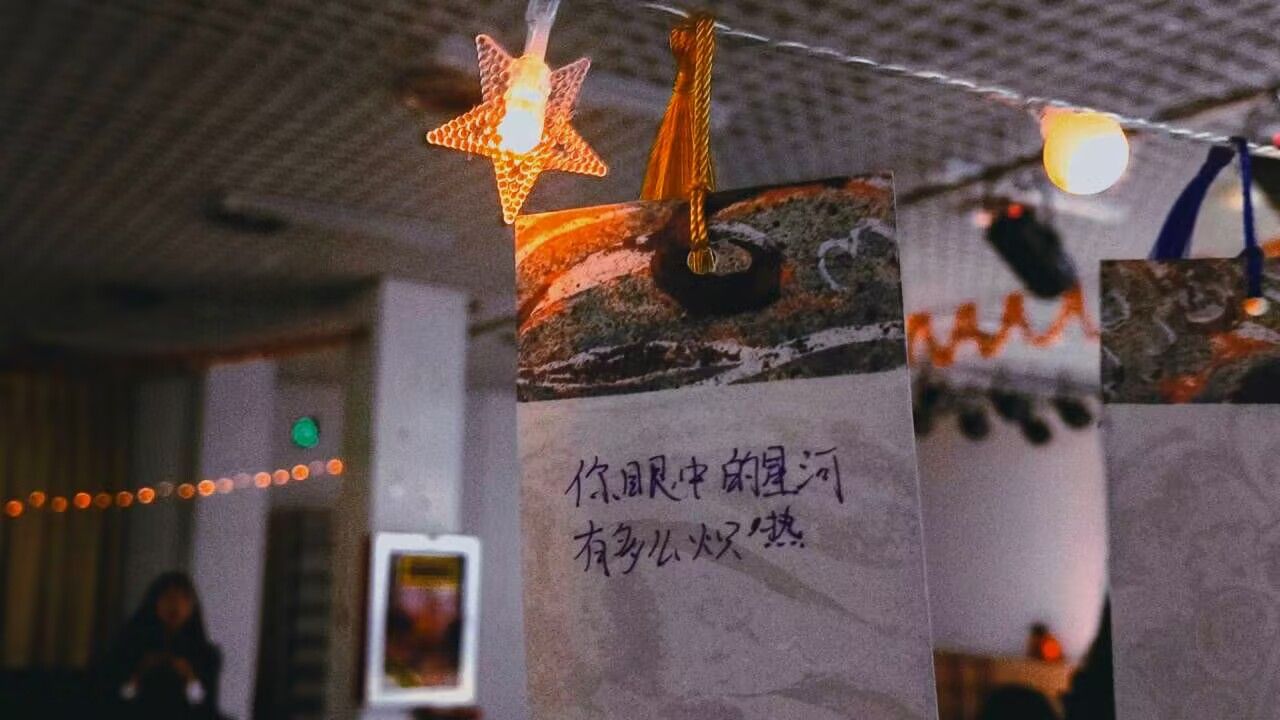 你眼中的星河
有多么炽热